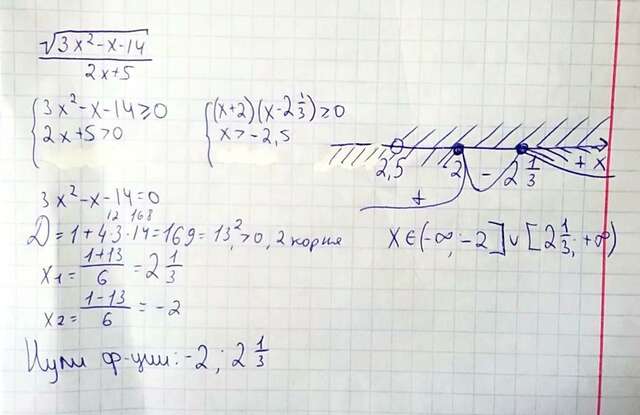 √(3x²-x-14) / (2x+5)
{ 3x²-x-14≥0
2x+5>0
{ (x+2)(x-2 1/3)≥0
x>-2,5
2,5 2 - 2 1/3 + x
+
3x²-x-14=0
12 168
D=1+4·3·14=169=13²>0, 2 корня
x₁= (1+13)/6 =2 1/3
x₂= (1-13)/6 =-2
X∈(-∞;-2]∪[2 1/3;+∞)
Нули ф-ции: -2; 2 1/3